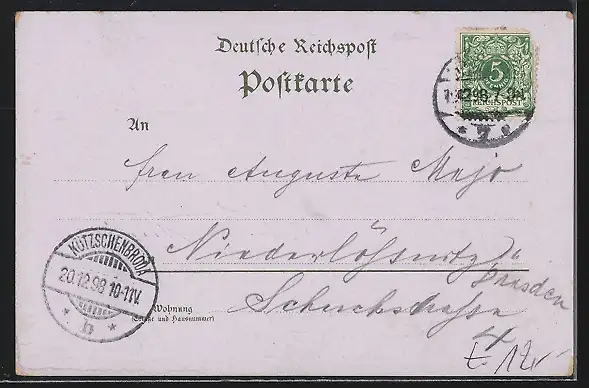 Deutsche Reichspost
Postkarte
5
REICHSPOST
An
Frau Auguste Majo
Niederlößnitz
Dresden
KÖTZSCHENBRODA
20.12.98 10-11V.
b
Wohnung
(Straße und Hausnummer)
4